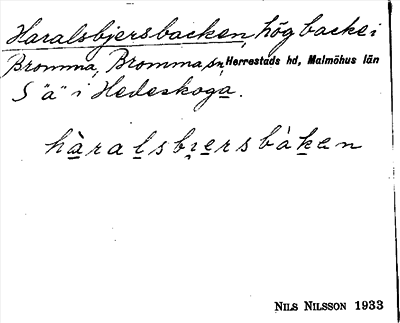 Haralsbjersbacken, hög backe i
Bromma, Bromma sn, Herrestads hd, Malmöhus län
S "ä" i Hedeskoga.
hàralsbjersbàken
NILS NILSSON 1933